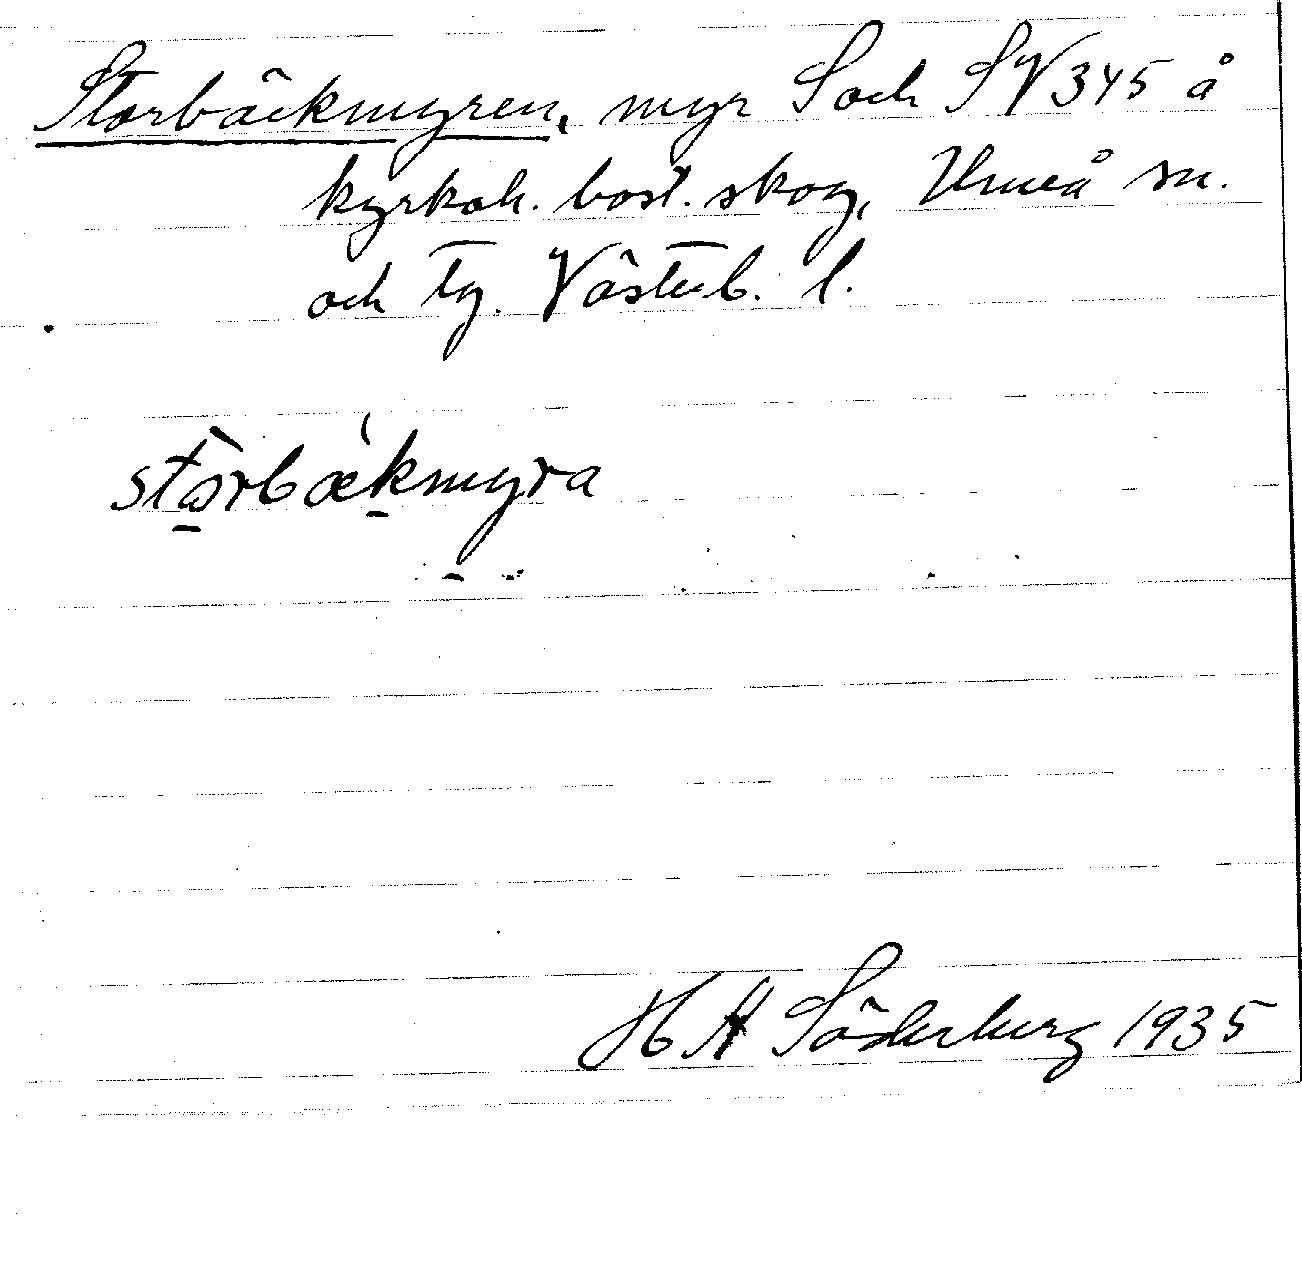 Storbäckmyren, myr S och SV 345 å
kyrkoh. bost. skog, Umeå sn.
och tg. Västerb. l.
stòrbækmyra
H A Söderberg 1935